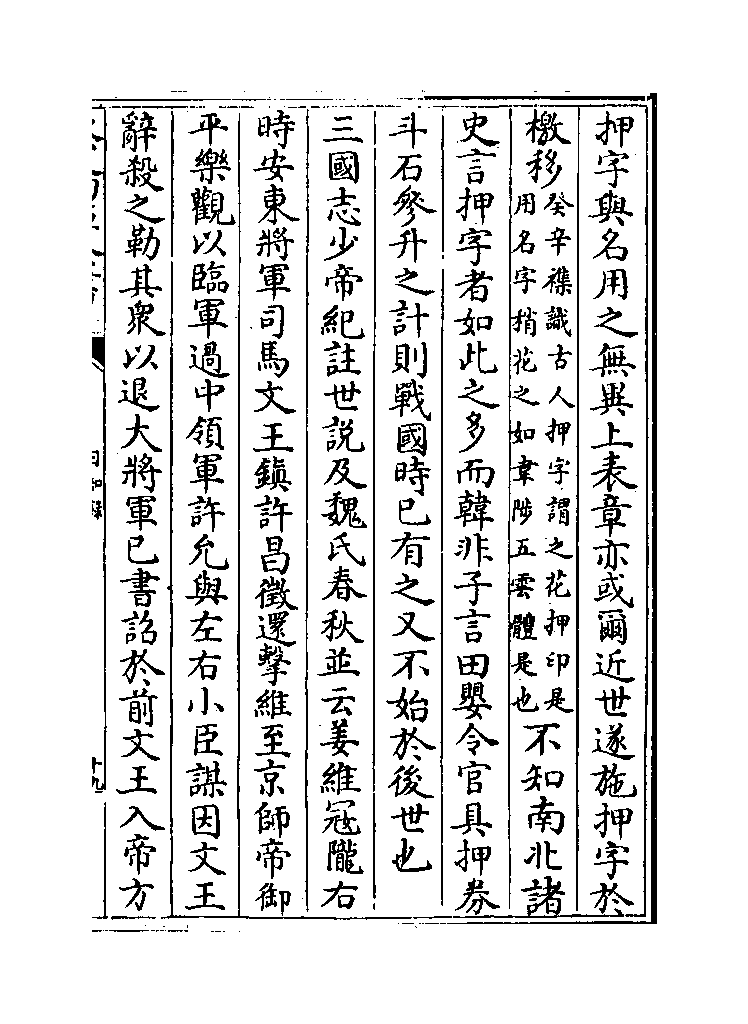 押字與名用之無異上表章亦或爾近世遂施押字於
檄移癸辛襍識古人押字謂之花押印是用名字稍花之如韋陟五雲體是也不知南北諸
史言押字者如此之多而韓非子言田嬰令官具押券
斗石參升之計則戰國時已有之又不始於後世也
三國志少帝紀註世說及魏氏春秋並云姜維寇隴右
時安東將軍司馬文王鎮許昌徵還擊維至京師帝御
平樂觀以臨軍過中領軍許允與左右小臣謀因文王
辭殺之勒其衆以退大將軍已書詔於前文王入帝方
日知錄
十九